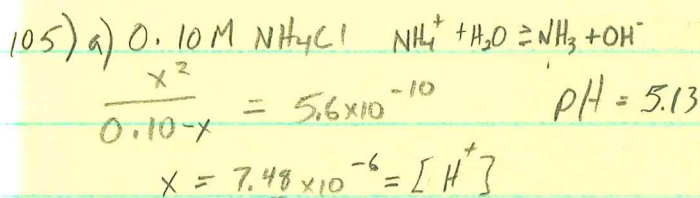 105) a) 0.10 M NH4Cl NH4+ + H2O ⇌ NH3 + OH-
x^2 / 0.10-x = 5.6x10^-10 pH = 5.13
x = 7.48 x10^-6 = [H+]